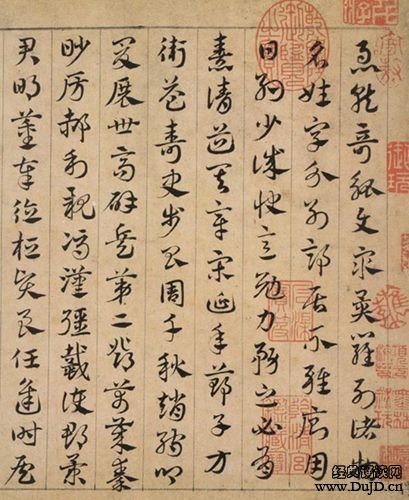 急就奇觚與眾異羅列諸物
名姓字分別部居不雜廁用
日約少誠快意勉力務之必有
憙請道其章宋延年鄭子方
衛益壽史步昌周千秋趙孺卿
爰展世高辟兵第二鄧萬歲秦
眇房郝利親馮漢彊戴護郡景
君明董奉德桓賢良任逢時侯
www.DujD.cn